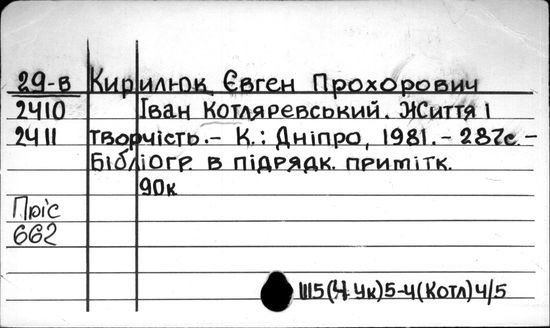 29-в Кирилюк Євген Прохорович
2410 Іван Котляревський. Життя і
2411 творчість.- К.: Дніпро, 1981.- 287с.-
Бібліогр. в підрядк. примітк.
90к
Пріс
662
Ш5(4 Ук)5-4(Котл)4/5